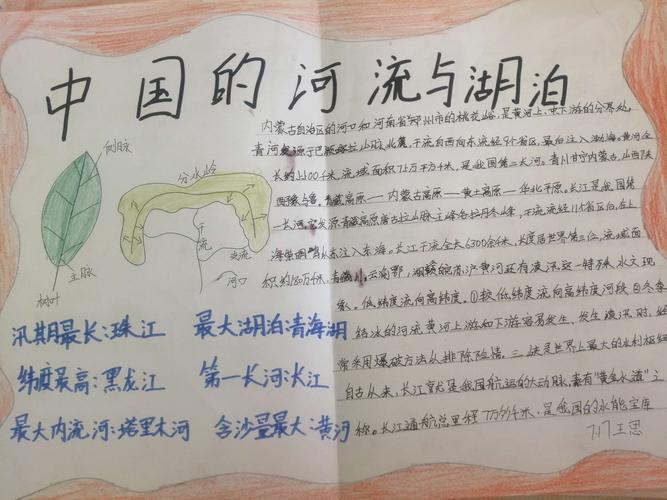 中国的河流与湖泊
内蒙古自治区的河口和河南省郑州市的桃花峪,是黄河上、中下游的分界处。
青河发源于巴颜喀拉山脉北麓,干流自西向东流经9个省区,最后注入渤海。黄河全
长约5500千米,流域面积75万平方千米,是我国第二长河。青川甘宁内蒙古,山西陕
西豫与鲁。青藏高原——内蒙古高原——黄土高原——华北平原。长江是我国第
一长河,它发源青藏高原唐古拉山脉主峰各拉丹冬山峰,干流流经11个省区向,在上
海崇明岛以东注入东海。长江干流全天6300余千米,长度居世界第三位,流域面
积约180万千米,青藏川,云南鄂,湖赣皖青沪黄河还有凌汛这一特殊水文现
象。低纬度流向高纬度。①较低纬度流向高纬度河段②冬季
结冰的河流黄河上游和下游容易发生,发生凌汛时,经
常采用爆破方法从排除险情。三峡是世界上最大的水利枢纽
自古从来,长江就是我国航运的大动脉,素有“黄金水道”之
称。长江通航总里程7万多千米,是我国的水能宝库
侧脉
主脉
树叶
分水岭
干流
支流
河口
汛期最长:珠江
最大湖泊:青海湖
纬度最高:黑龙江
第一长河:长江
最大内流河:塔里木河
含沙量最大:黄河
王思